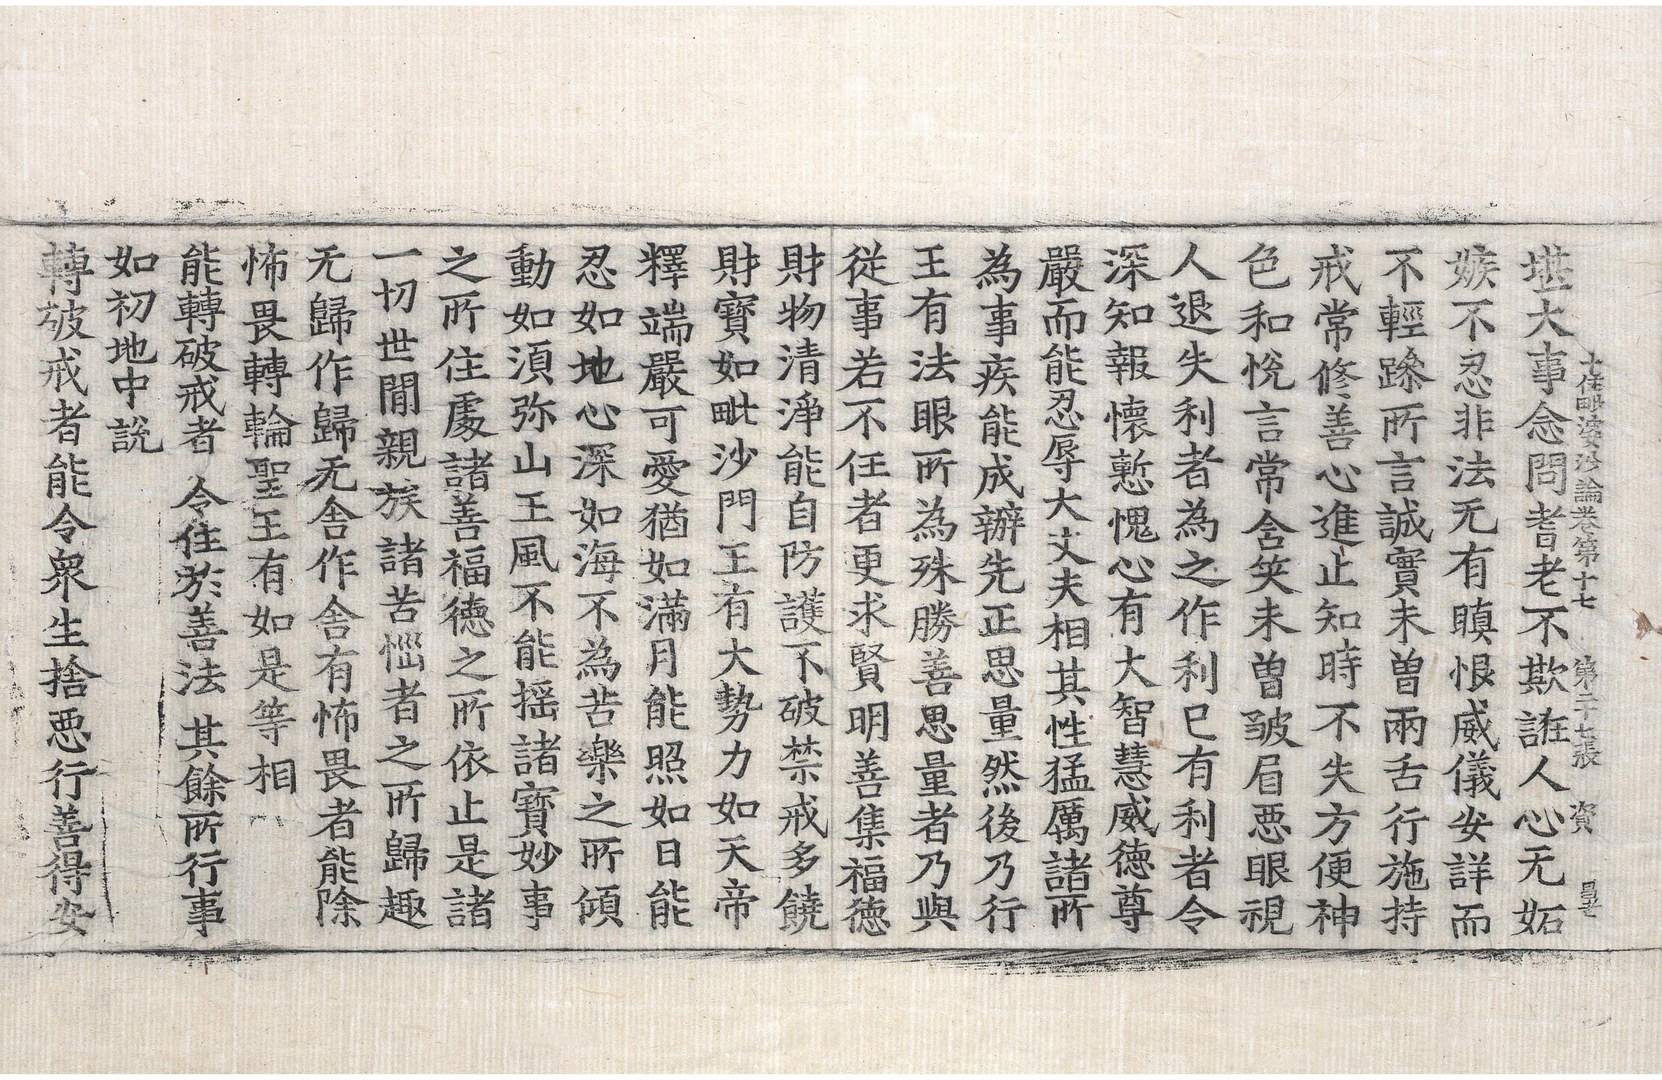 十住毗婆沙論卷第十七　第二十七張　資
堪大事念問耆老不欺誑人心无妬
嫉不忍非法无有瞋恨威儀安詳而
不輕躁所言誠實未曽兩舌行施持
戒常修善心進止知時不失方便神
色和悅言常含笑未曽皺眉惡眼視
人退失利者為之作利已有利者令
深知報懷慙愧心有大智慧威德尊
嚴而能忍辱大丈夫相其性猛厲諸所
為事疾能成辦先正思量然後乃行
王有法眼所為殊勝善思量者乃與
從事若不任者更求賢明善集福德
財物清淨能自防護不破禁戒多饒
財寶如毗沙門王有大勢力如天帝
釋端嚴可愛猶如滿月能照如日能
忍如地心深如海不為苦樂之所傾
動如須弥山王風不能搖諸寶妙事
之所住處諸善福德之所依止是諸
一切世間親族諸苦惱者之所歸趣
无歸作歸无舍作舍有怖畏者能除
怖畏轉輪聖王有如是等相
能轉破戒者　令住於善法　其餘所行事
如初地中說
轉破戒者能令衆生捨惡行善得安